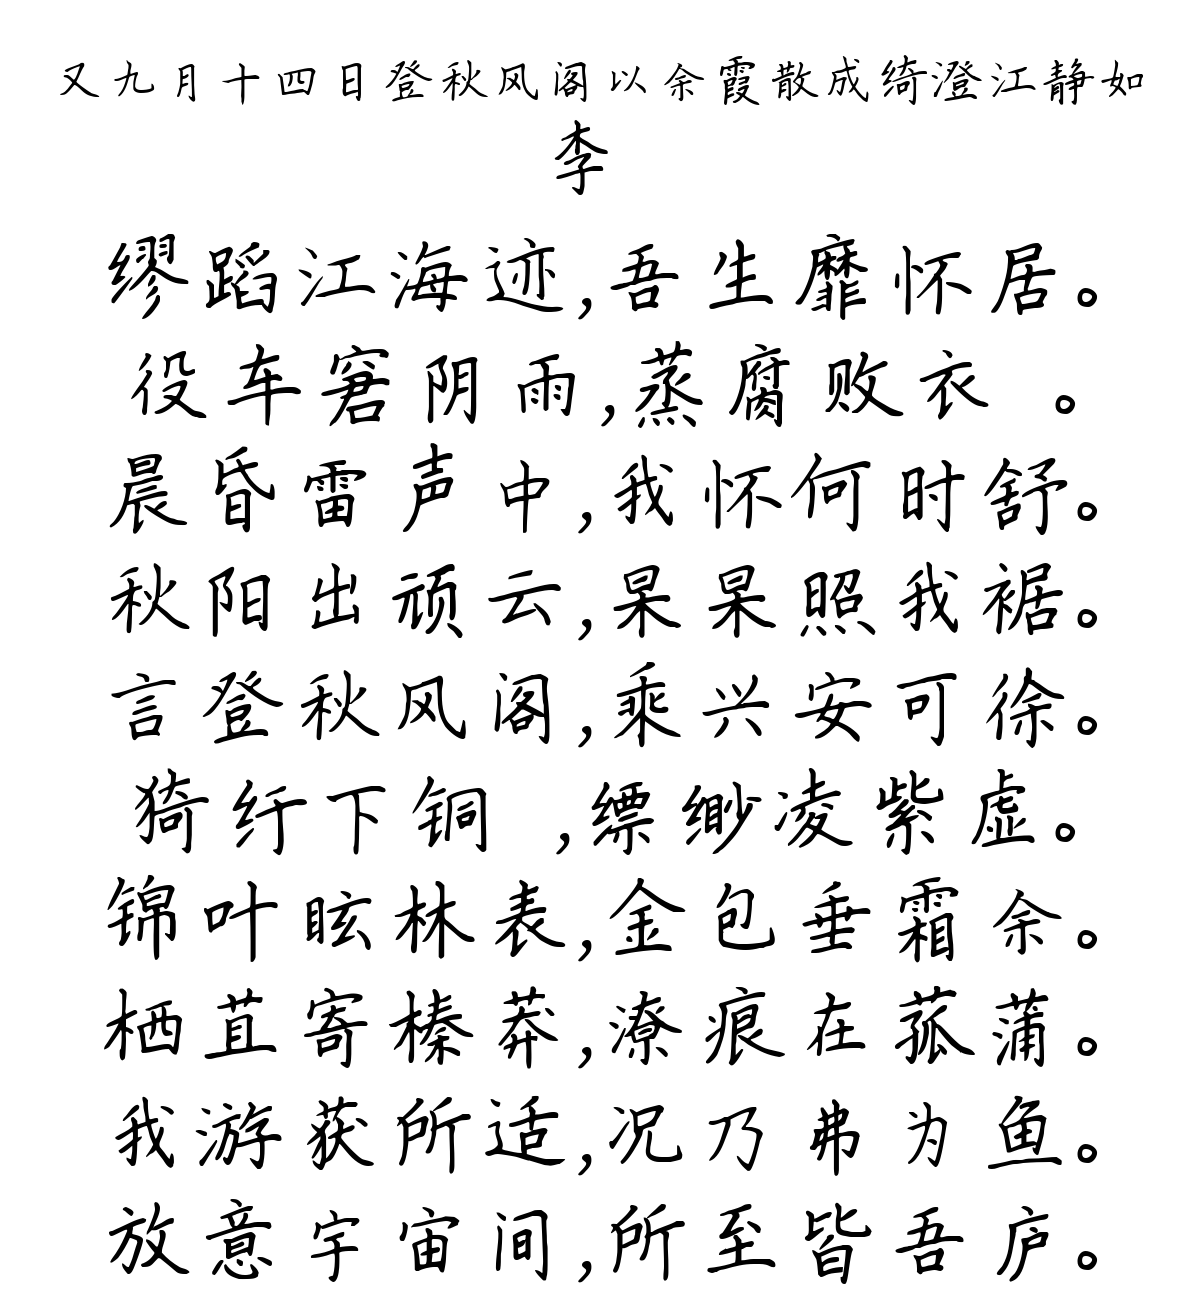 又九月十四日登秋风阁以余霞散成绮澄江静如
李
缪蹈江海迹,吾生靡怀居。
役车窘阴雨,蒸腐败衣 。
晨昏雷声中,我怀何时舒。
秋阳出顽云,杲杲照我裾。
言登秋风阁,乘兴安可徐。
猗纡下铜 ,缥缈凌紫虚。
锦叶眩林表,金包垂霜余。
栖苴寄榛莽,潦痕在菰蒲。
我游获所适,况乃弗为鱼。
放意宇宙间,所至皆吾庐。